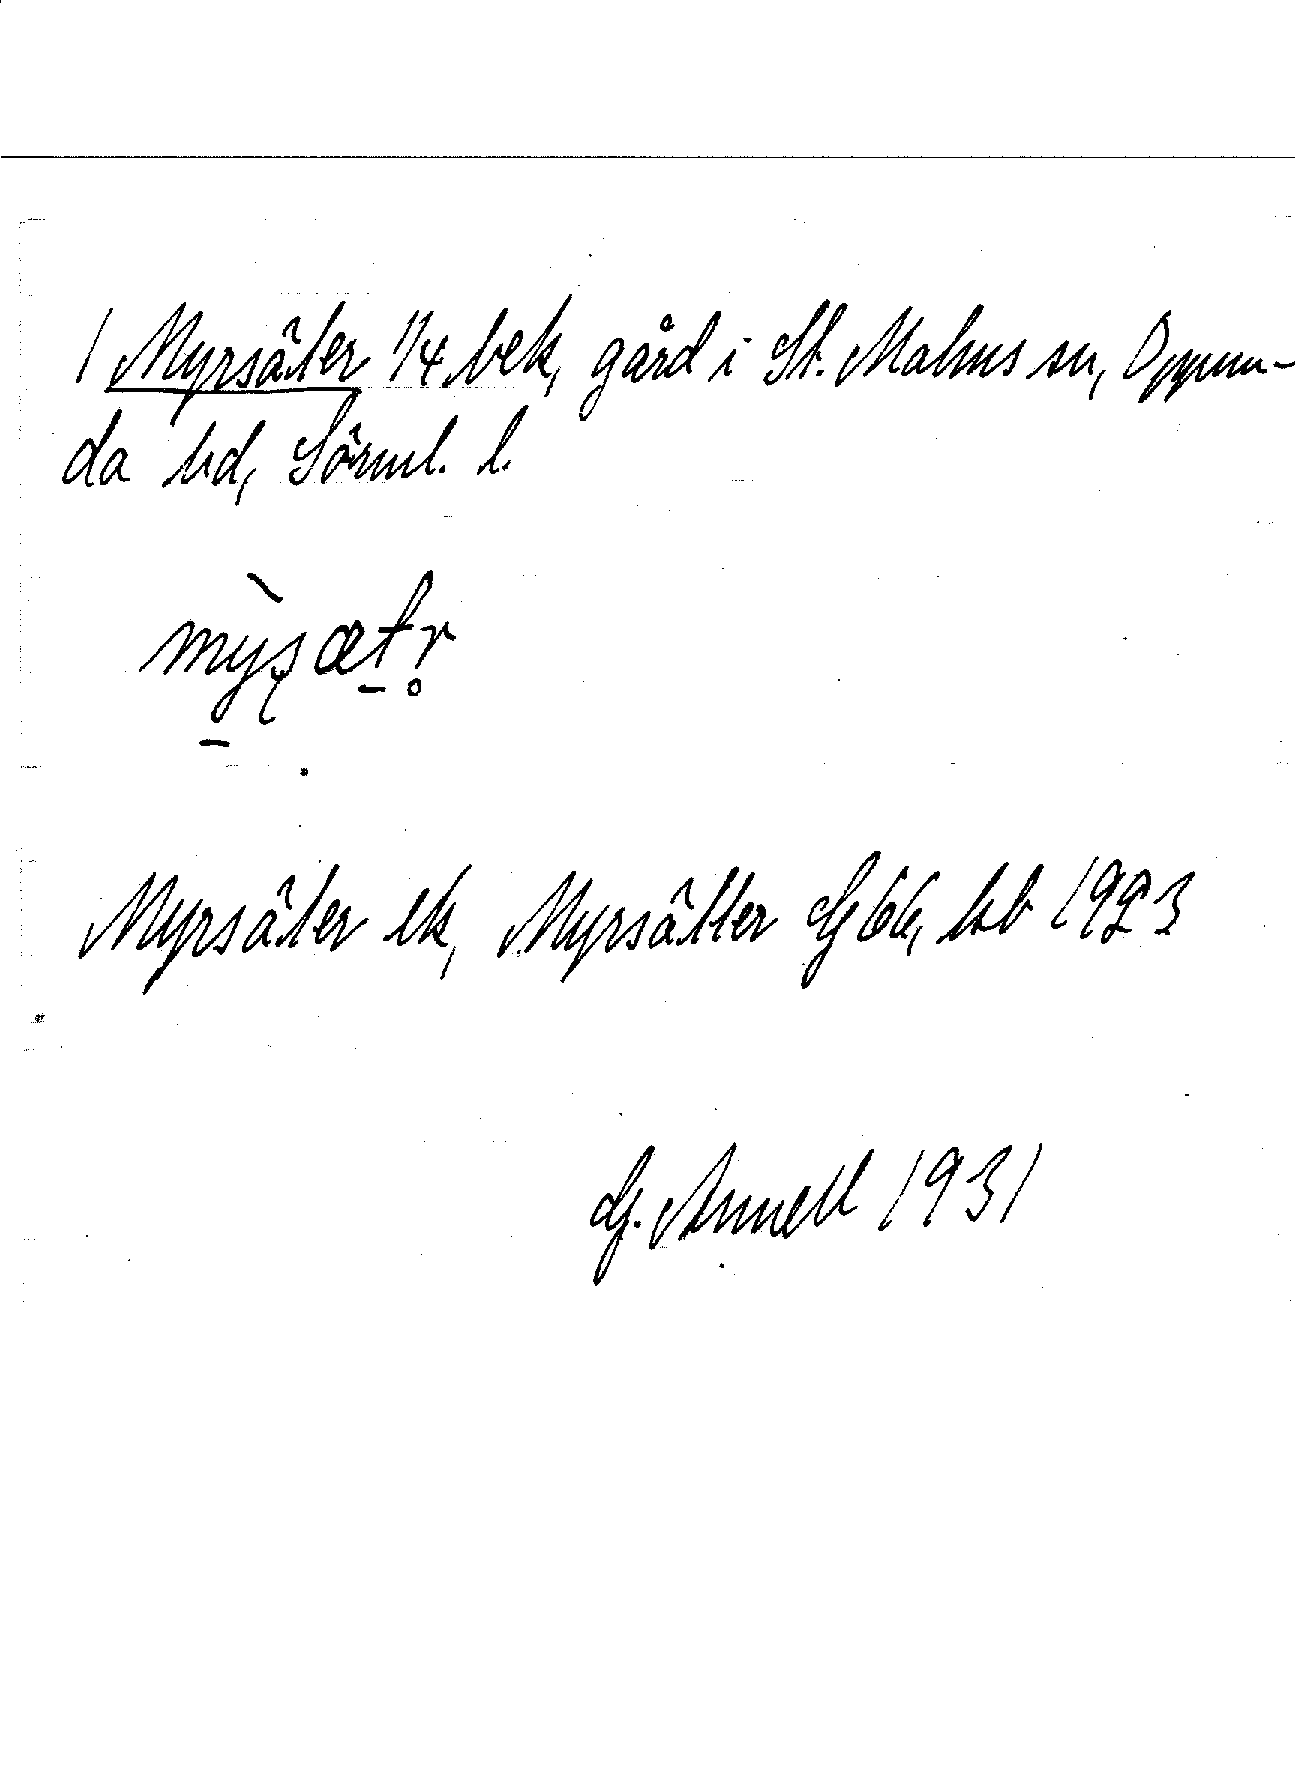 1 Myrsäter 1/4 bek, gård i St. Malms sn, Oppun-
da hd, Sörml. l.
my̱ʂæṯr̥
Myrsäter ek, Myrsätter G 66, hb 1923
G. Annell 1931